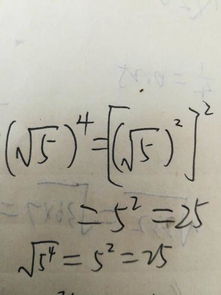 (√5)⁴=[(√5)²]²
=5²=25
√5⁴=5²=25